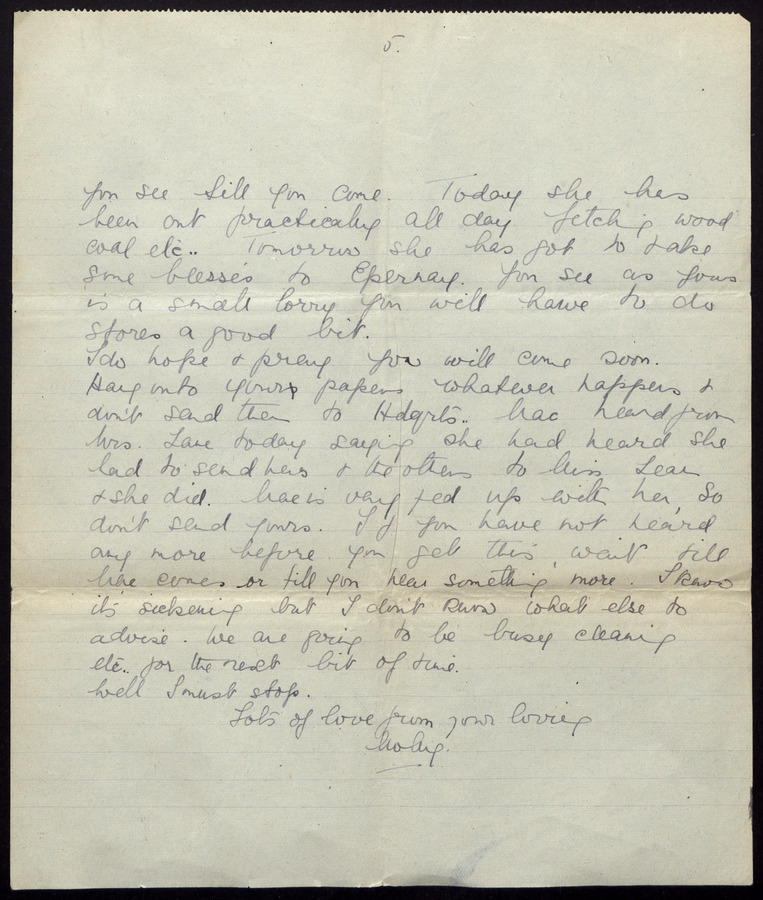 5.
You see till you come. Today she has
been out practically all day fetching wood
coal etc.. Tomorrow she has got to take
some blessés to Epernay. You see as yours
is a small lorry you will have to do
stores a good bit.
I do hope & pray you will come soon.
Hang onto yours papers whatever happens &
don't send them to Hdqrts.. Mac heard from
Mrs. Lane today saying she had heard she
had to send hers & the others to Miss Lean
& she did. Mac is very fed up with her, So
don't send yours. If you have not heard
any more before you get this, wait till
Mac comes or till you hear something more. I know
it's sickening but I don't know what else to
advise. We are going to be busy cleaning
etc.. for the next bit of time.
Well I must stop.
Lots of love from your loving